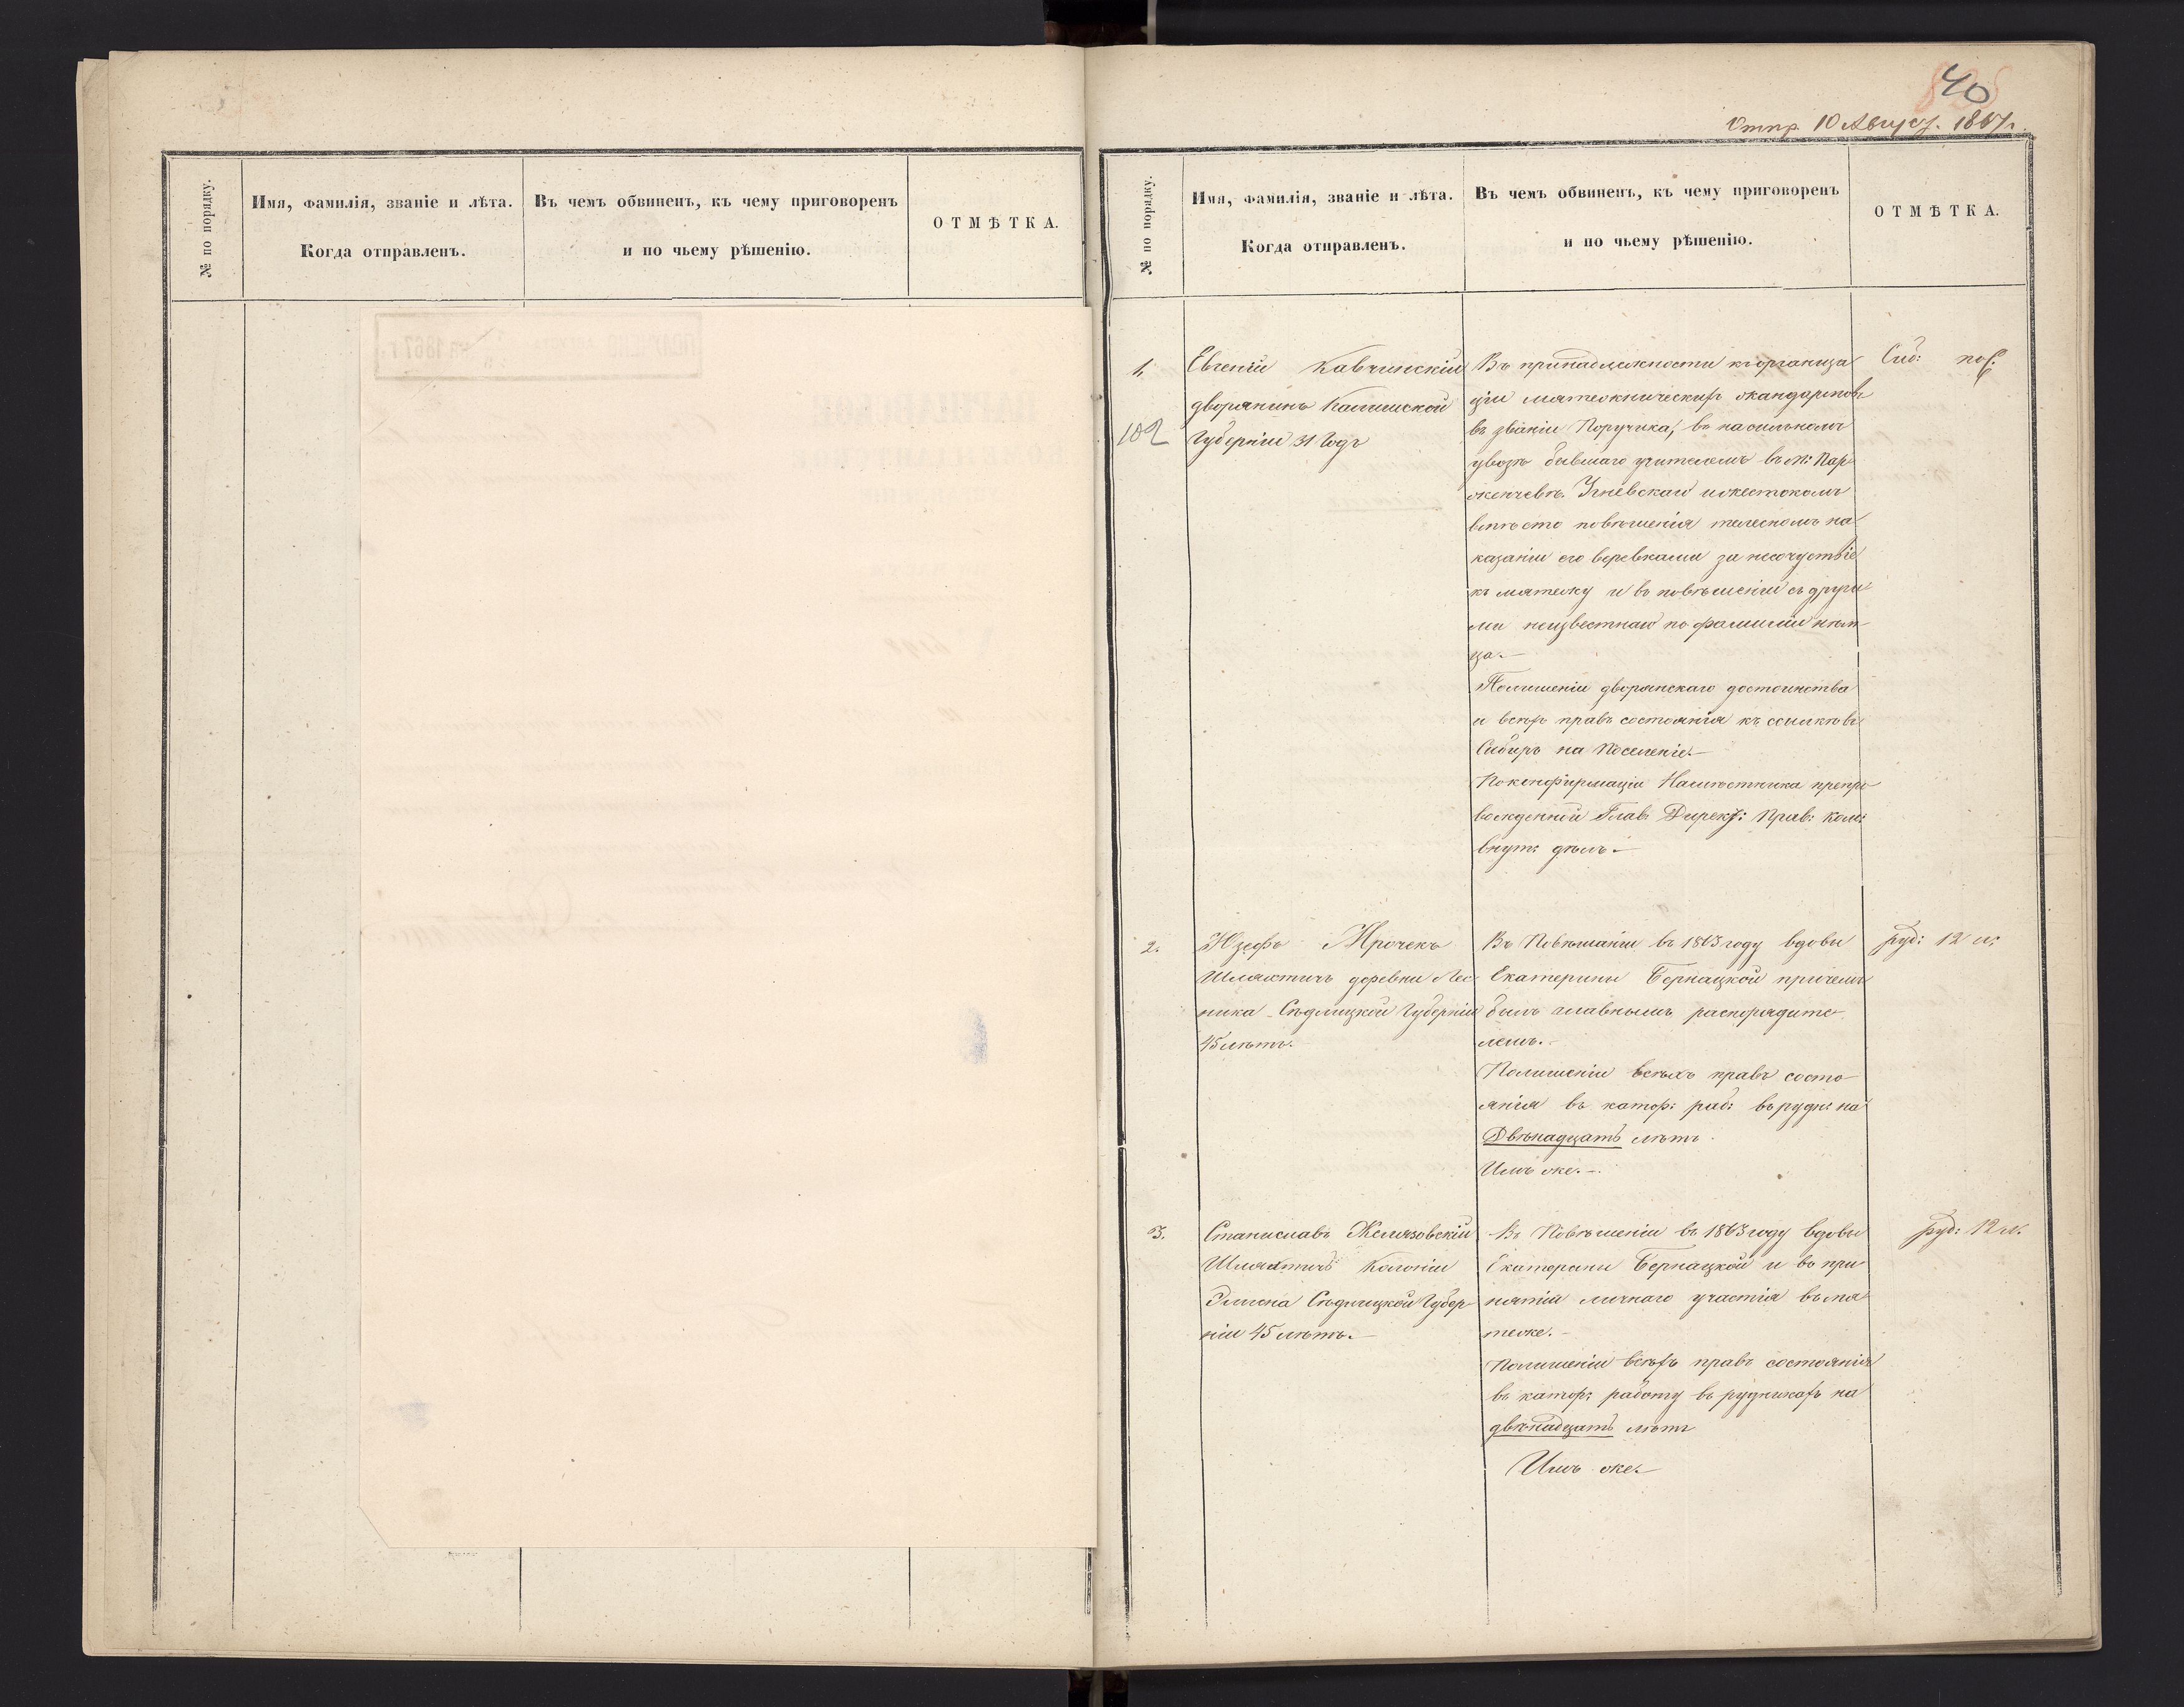 № по порядку.
Имя, фамилія, званіе и лѣта.
Когда отправленъ.
Въ чемъ обвиненъ, къ чему приговоренъ
и по чьему рѣшенію.
ОТМѢТКА.
40
Отпр. 10 Август. 1867 г.
№ по порядку.
Имя, фамилія, званіе и лѣта.
Когда отправленъ.
Въ чемъ обвиненъ, къ чему приговоренъ
и по чьему рѣшенію.
ОТМѢТКА.
1.
102
Евгеній Кавчинскій
дворянинъ Калишской
Губерніи 31 Годъ
Въ принадлежности къ организа
ціи мятежническихъ жандармовъ
въ званіи Поручика, въ насильномъ
увозѣ бывшаго учителемъ въ м:
и жестокомъ
вмѣсто повѣшенія телесномъ на
казаніи его веревками за несочуствіе
къ мятежу и въ повѣшеніи съ други
ми неизвестнаго по фамиліи нѣм
ца.—
По лишеніи дворянскаго достоинства
и всѣхъ правъ состоянія къ ссылкѣ въ
Сибирь на Поселеніе.—
По конфирмаціи Намѣстника препро
вожденной Глав: Директ: Прав: ком:
внут: дѣлъ.—
Сиб: пос:
2.
Юзефъ Мрочекъ
Шляхтичъ деревни Лес
ника Сѣдлицкой Губерніи
45 лѣтъ.
Въ Повѣшаніи въ 1863 году вдовы
Екатерины Бернацкой причемъ
былъ главнымъ распорядите
лемъ.—
По лишеніи всѣхъ правъ состо
янія въ катор: раб: въ рудн: на
Двѣнадцать лѣтъ.
Имъ же.—
руд: 12 л:
3.
Станиславъ Желязовскій
Шляхтичъ Колоніи
Сѣдлицкой Губер
ніи 45 лѣтъ.—
Въ Повѣшеніи въ 1863 году вдовы
Екатерины Бернацкой и въ при
нятіи личнаго участія въ мя
тежѣ.—
По лишеніи всѣхъ правъ состоянія
въ катор: работу въ рудникахъ на
двѣнадцать лѣтъ
Имъ же.—
руд: 12 л.